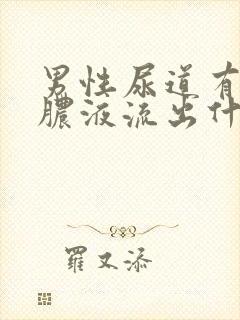 男性尿道有
膿液流出什
羅又添